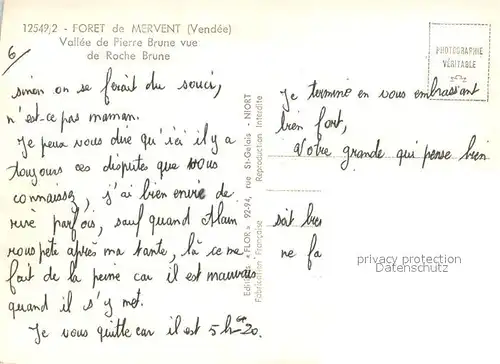 12549,2 - FORET de MERVENT (Vendée)
Vallée de Pierre Brune vue
de Roche Brune
6
sinon on se ferait du souci,
n'est-ce pas maman.
Je peux vous dire qu'ici il y a
toujours ces disputes que vous
connaissez, j'ai bien envie de
rire parfois, sauf quand Alain
rouspète après ma tante, là ça me
fait de la peine car il est mauvais
quand il s'y met.
Je vous quitte car il est 5h 20.
Editions « FLOR » 92-94, rue St-Gelais - NIORT
Fabrication Française Reproduction Interdite
PHOTOGRAPHIE
VÉRITABLE
Je termine en vous embrassant
bien fort,
Votre grande qui pense bien
soit bien
ne fa
privacy protection
Datenschutz